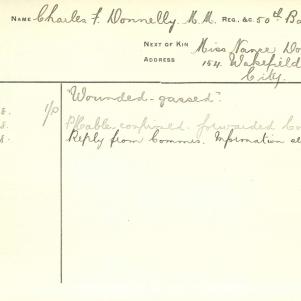 NAME Charles F. Donnelly M.M. REG. &C. 50th Ba
NEXT OF KIN Miss Nance Do
ADDRESS 154 Wakefield
City.
1/0 "Wounded - gassed".
8. P/Cable confirmed. forwarded
8. Reply from Commis. Information